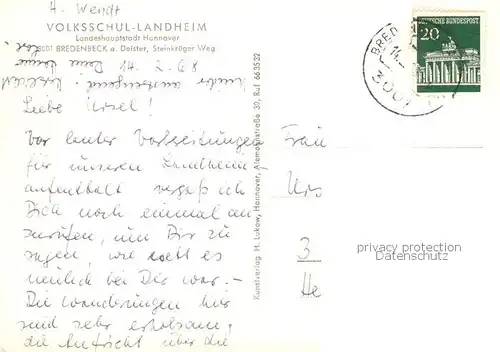 H. Wendt
VOLKSSCHUL-LANDHEIM
Landeshauptstadt Hannover
3001 BREDENBECK a. Deister, Steinkrüger Weg
14. 2. 68
Liebe Ursel!
Vor lauter Vorbereitungen
für unseren Landheim-
aufenthalt vergaß ich
Dich noch einmal an-
zurufen, um Dir zu
sagen, wie nett es
neulich bei Dir war. -
Die Wanderungen hier
sind sehr erholsam,
die Aufsicht über die
Kunstverlag H. Lukow, Hannover, Alemannstraße 30, Ruf 663532
DEUTSCHE BUNDESPOST
20
BREDEN
14.-
3001
Frau
Urs
3
He
privacy protection
Datenschutz